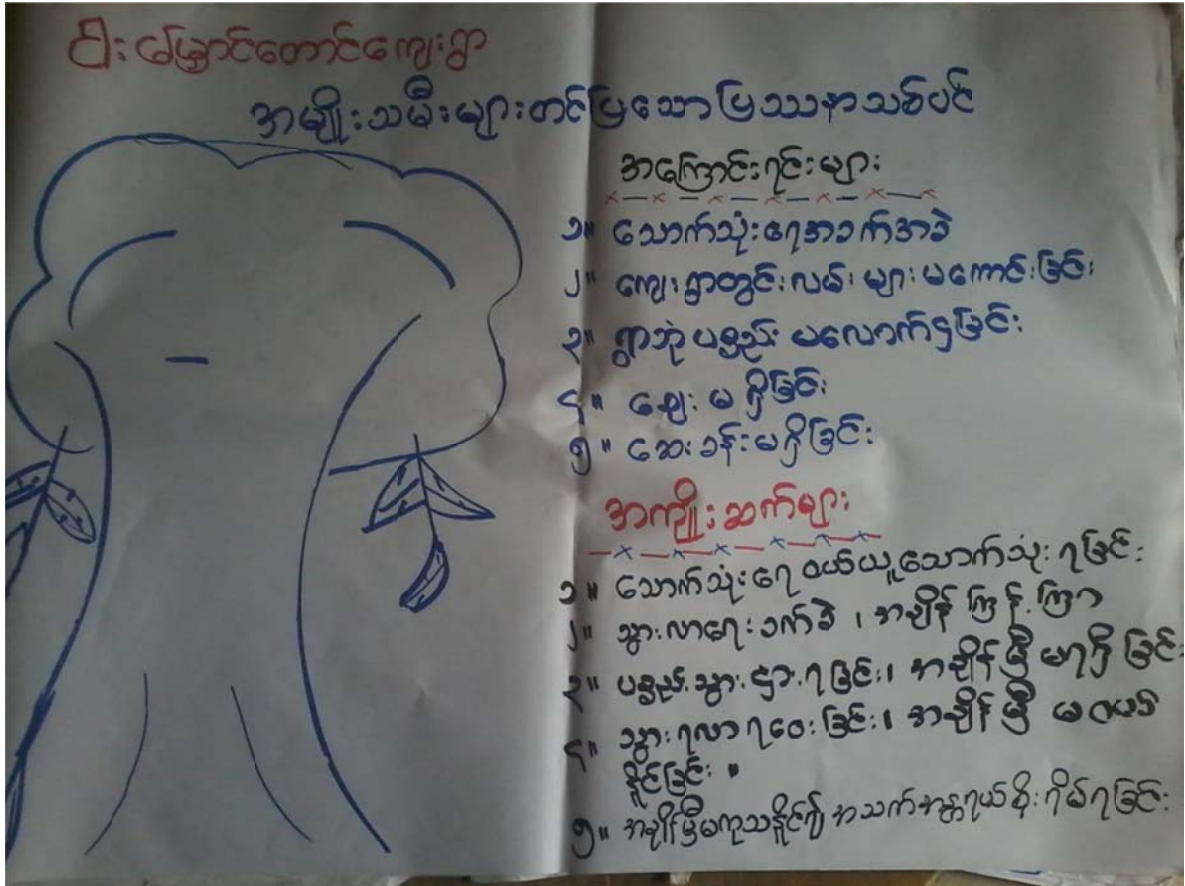 ငါးမြှောင်တောင်ကျေးရွာ
အမျိုးသမီးများတင်ပြသောပြဿနာသစ်ပင်
အကြောင်းရင်းများ
၁။ သောက်သုံးရေအခက်အခဲ
၂။ ကျေးရွာတွင်းလမ်းများမကောင်းခြင်း
၃။ ရွာဘုံပစ္စည်းမလောက်ငှခြင်း
၄။ ဈေးမရှိခြင်း
၅။ ဆေးခန်းမရှိခြင်း
အကျိုးဆက်များ
၁။ သောက်သုံးရေဝယ်ယူသောက်သုံးရခြင်း
၂။ သွားလာရေးခက်ခဲ၊ အချိန်ကြန့်ကြာ
၃။ ပစ္စည်းသွားငှားရခြင်း၊ အချိန်မှီမရရှိခြင်း
၄။ သွားရလာရဝေးခြင်း၊ အချိန်မှီ မဝယ်
နိုင်ခြင်း။
၅။ အချိန်မှီမကုသနိုင်၍ အသက်အန္တရာယ်စိုးရိမ်ရခြင်း